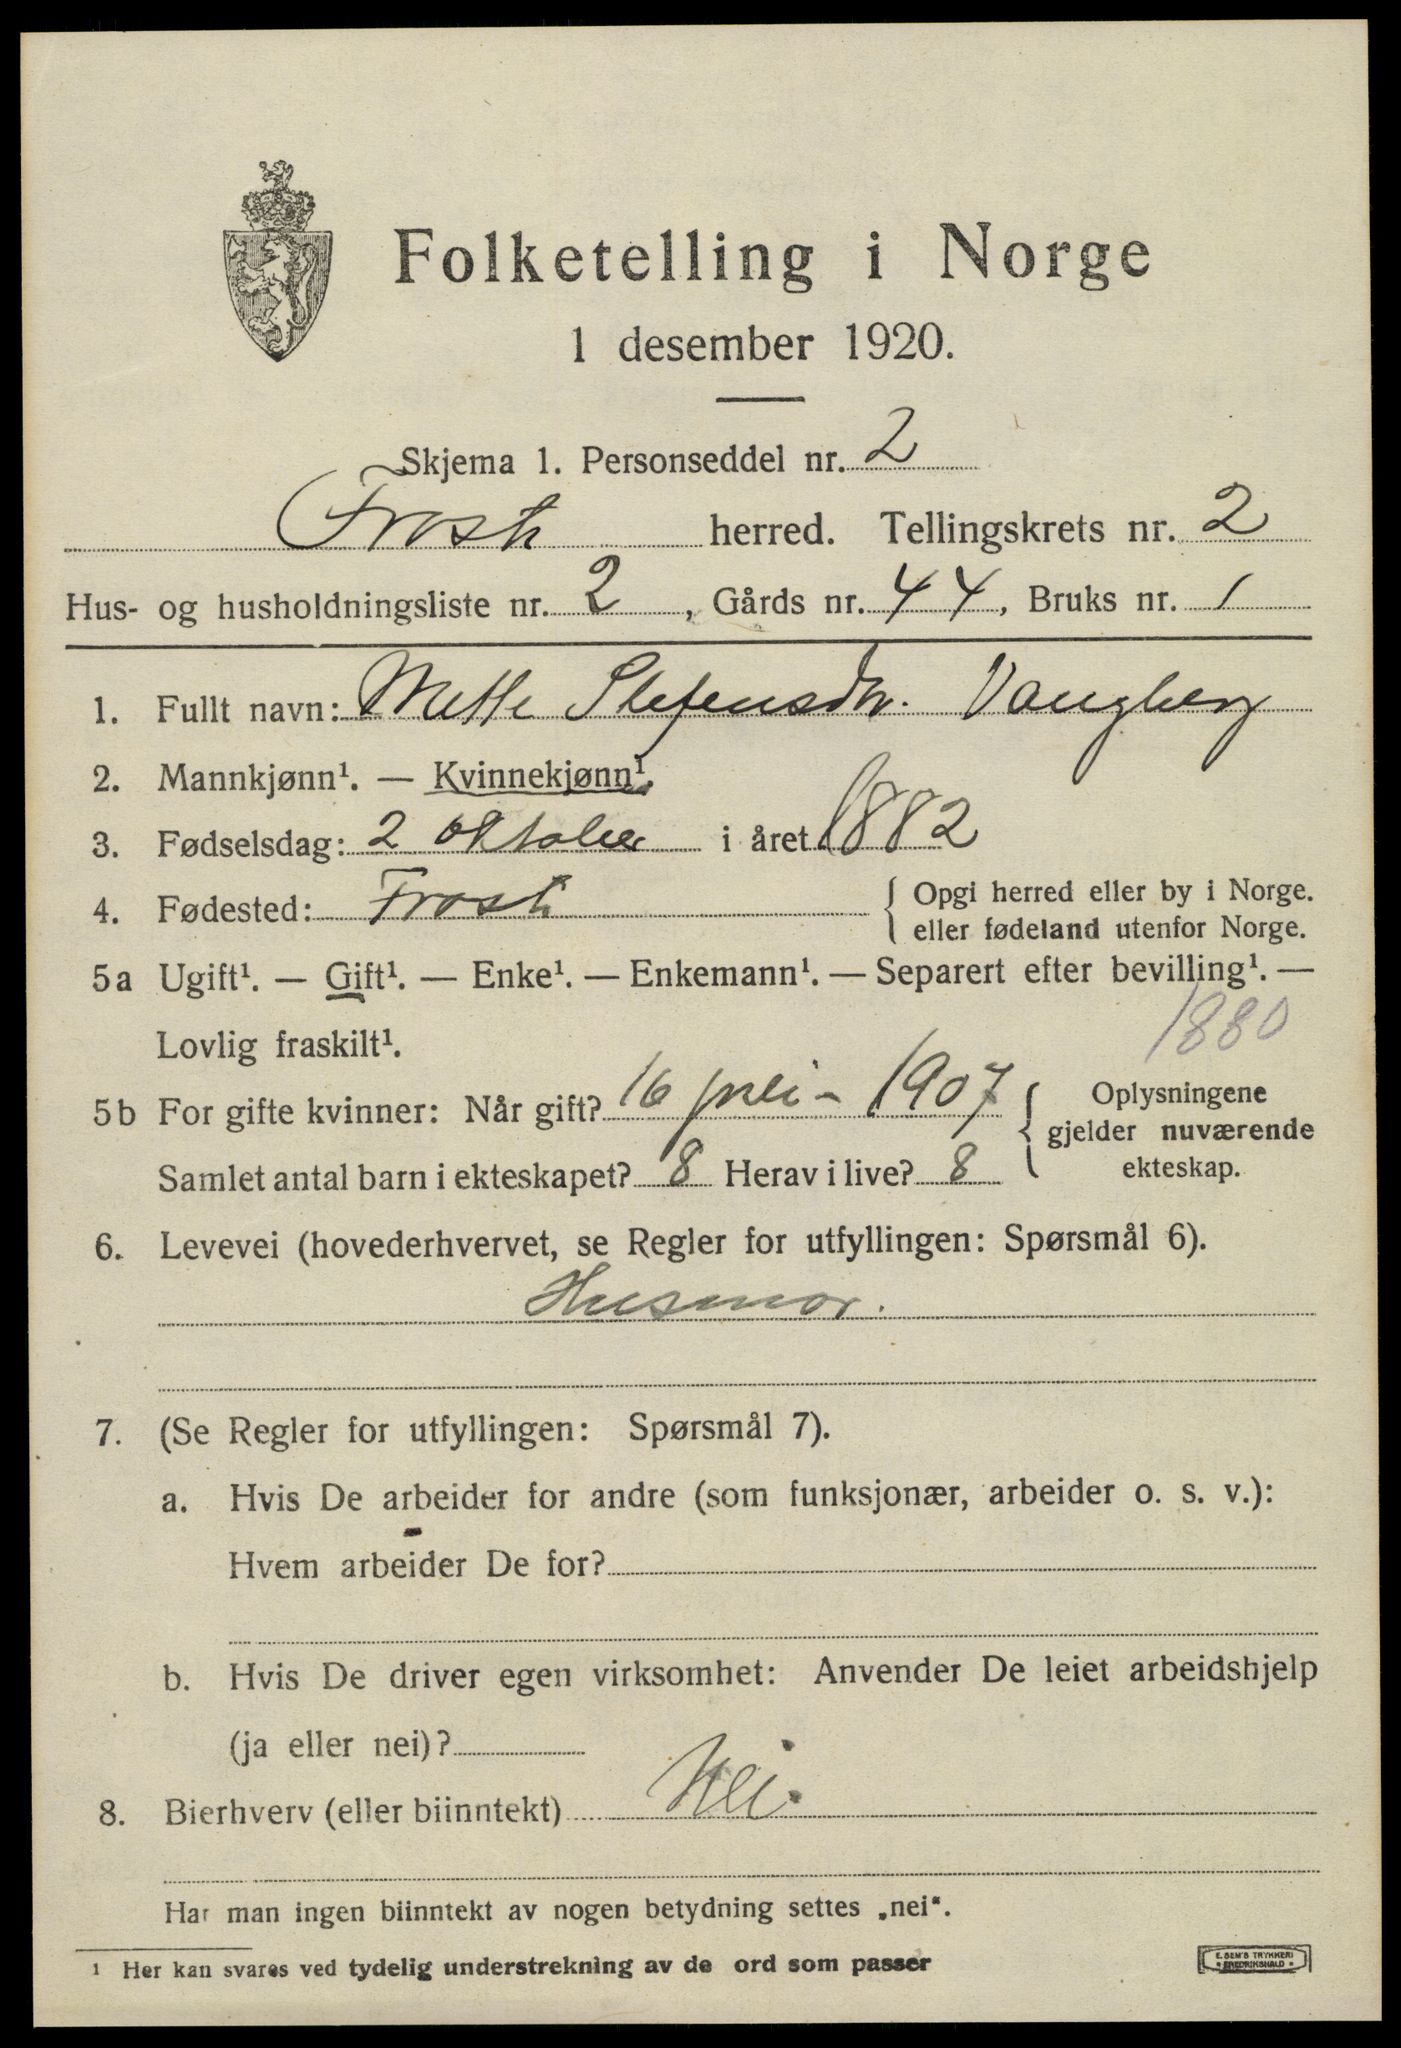 Folketelling i Norge
1 desember 1920.
Skjema 1. Personseddel nr. 2
Frosta herred. Tellingskrets nr. 2
Hus- og husholdningsliste nr. 2, Gårds nr. 44, Bruks nr. 1
1. Fullt navn: Mette Stefensdtr. Vangberg
2. Mannkjønn¹. — Kvinnekjønn¹.
3. Fødselsdag: 2 oktober i året 1882
4. Fødested: Frosta { Opgi herred eller by i Norge.
eller fødeland utenfor Norge.
5a Ugift¹. — Gift¹. — Enke¹. — Enkemann¹. — Separert efter bevilling¹. —
Lovlig fraskilt¹. 1880
5b For gifte kvinner: Når gift? 16 juli - 1907 { Oplysningene
gjelder nuværende
Samlet antal barn i ekteskapet? 8 Herav i live? 8 ekteskap.
6. Levevei (hovederhvervet, se Regler for utfyllingen: Spørsmål 6).
Husmor.
7. (Se Regler for utfyllingen: Spørsmål 7).
a. Hvis De arbeider for andre (som funksjonær, arbeider o. s. v.):
Hvem arbeider De for?
b. Hvis De driver egen virksomhet: Anvender De leiet arbeidshjelp
(ja eller nei)?
8. Bierhverv (eller biinntekt) Nei.
Har man ingen biinntekt av nogen betydning settes „nei“.
¹ Her kan svares ved tydelig understrekning av de ord som passer
E. SEM'S TRYKKERI
FREDRIKSHALD